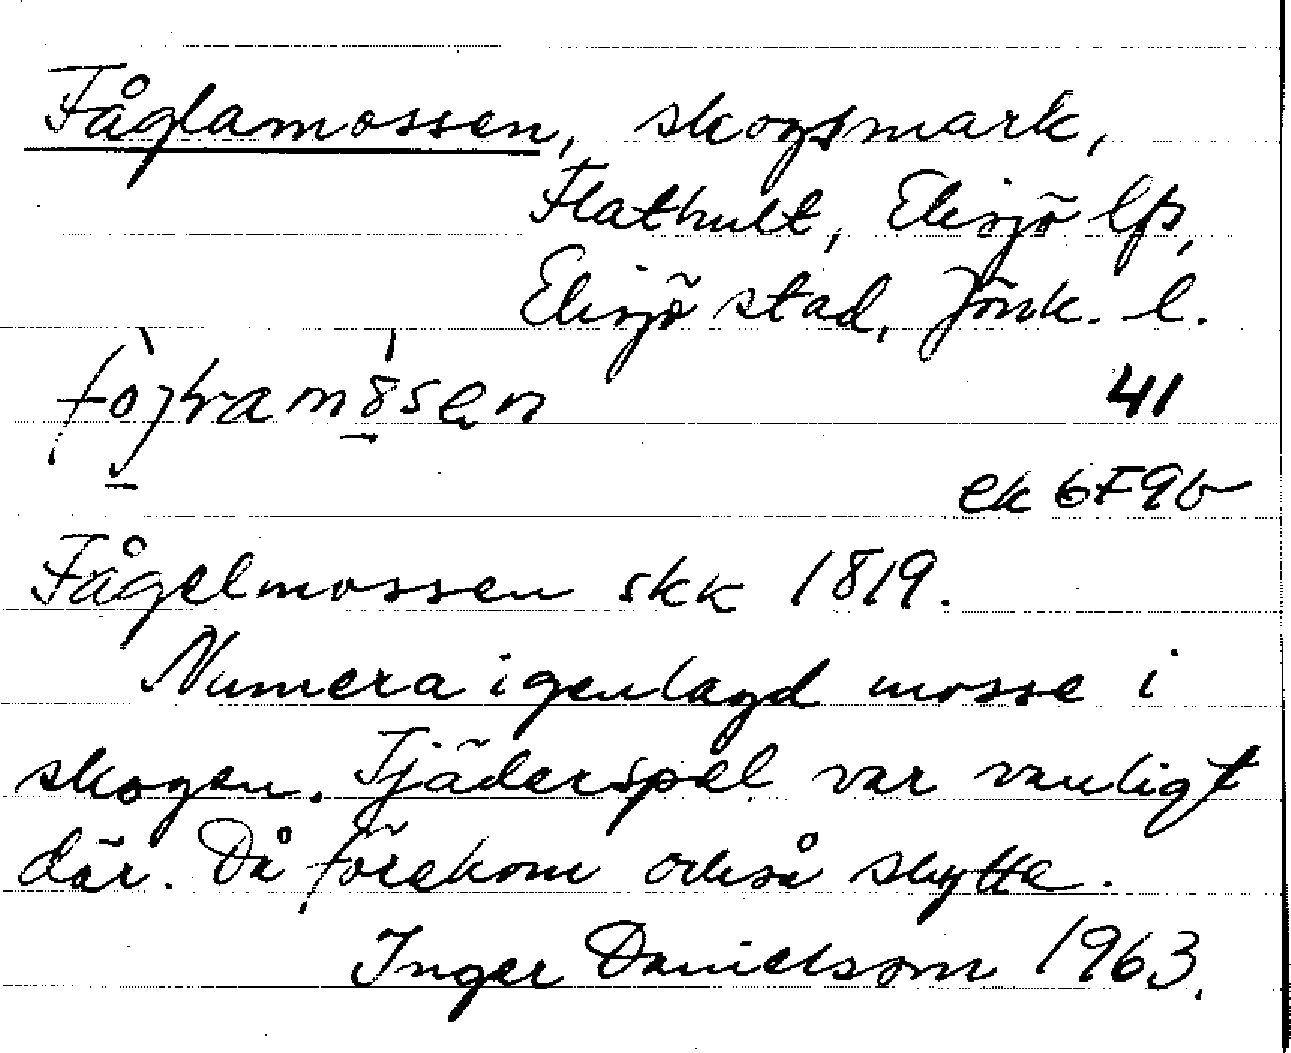 Fåglamossen, skogsmark,
Flathult, Eksjö lfs,
Eksjö stad, Jönk. l.
41
ek 6F9b
Fågelmossen skk 1819.
Numera igenlagd mosse i
skogen. Tjäderspel var vanligt
där. Då förekom också skytte.
Inger Danielsson 1963.